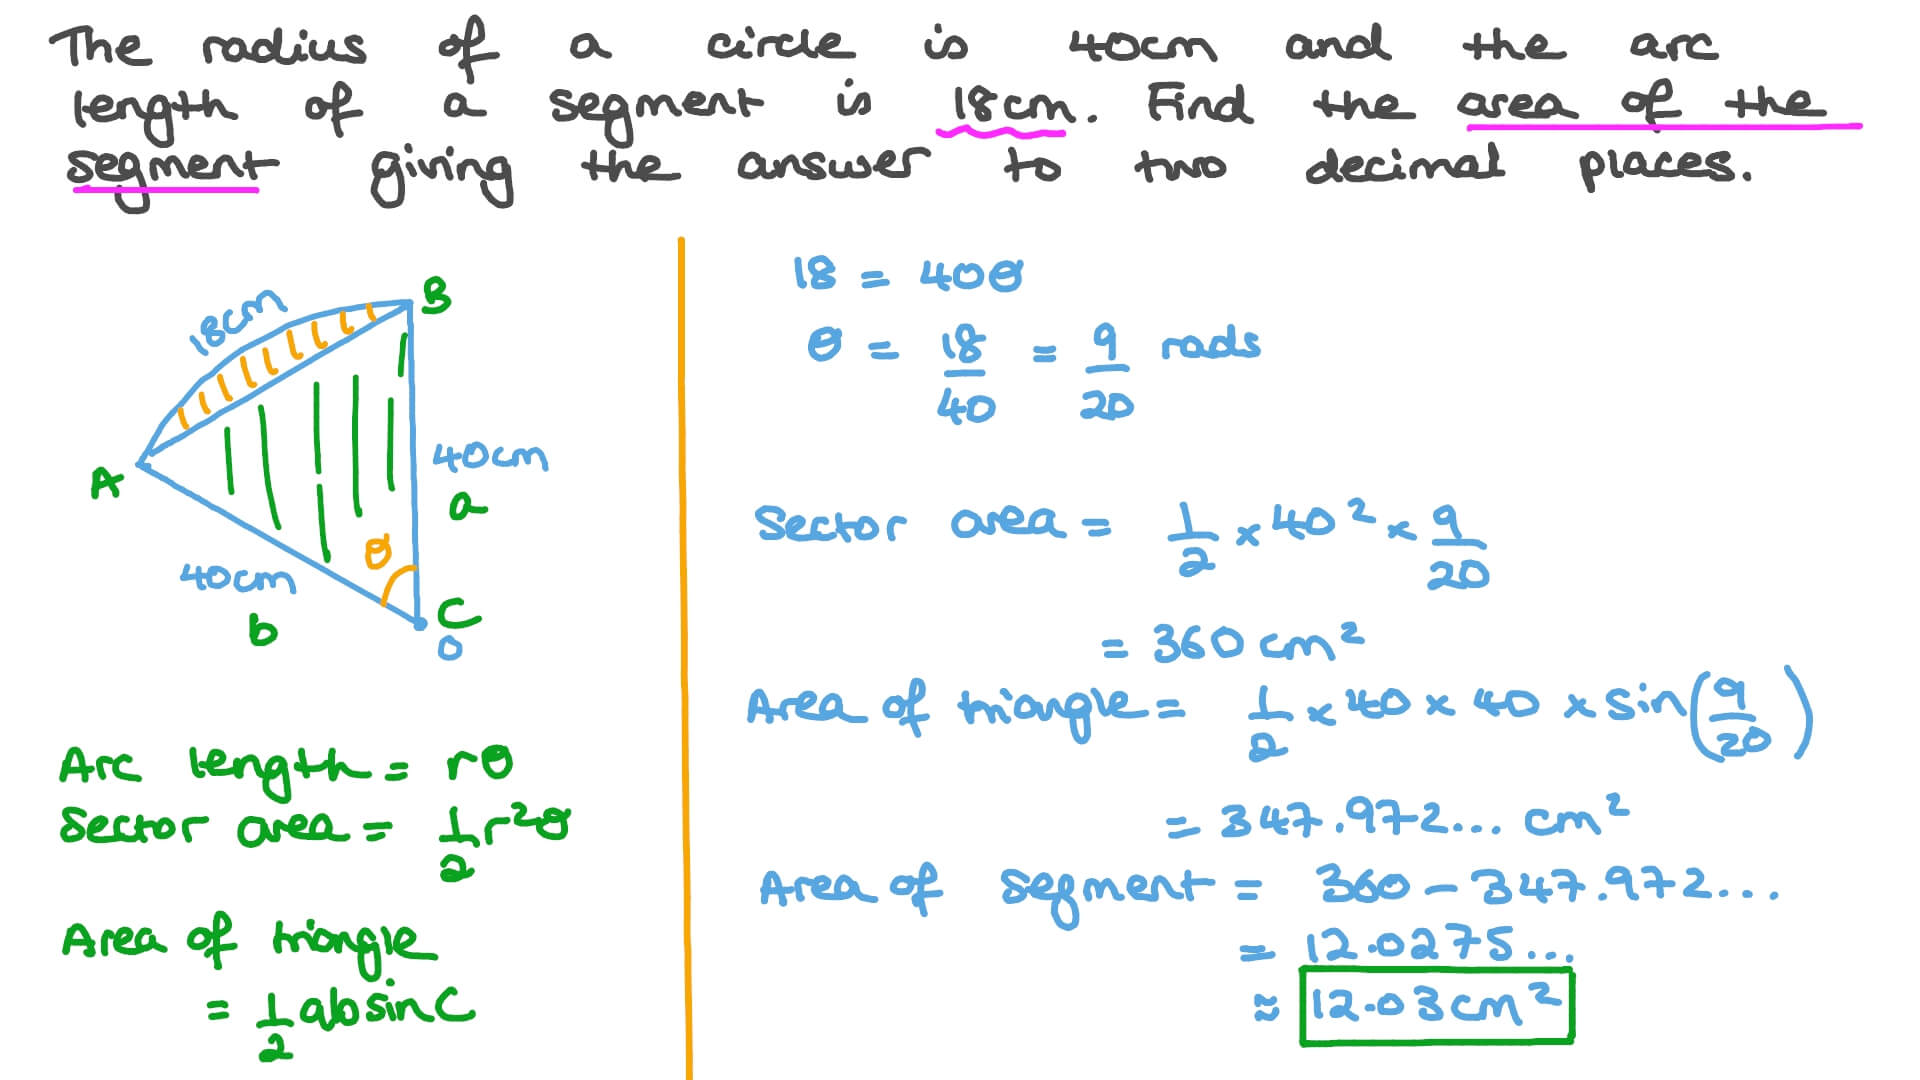 The radius of a circle is 40cm and the arc
length of a segment is 18cm. Find the area of the
segment giving the answer to two decimal places.
18cm
B
A
40cm
a
θ
40cm
b
C
O
Arc length = rθ
Sector area = 1/2 r²θ
Area of triangle
= 1/2 ab sin C
18 = 40θ
θ = 18/40 = 9/20 rads
Sector area = 1/2 × 40² × 9/20
= 360 cm²
Area of triangle = 1/2 × 40 × 40 × sin(9/20)
= 347.972... cm²
Area of segment = 360 - 347.972...
= 12.0275...
≈ 12.03 cm²